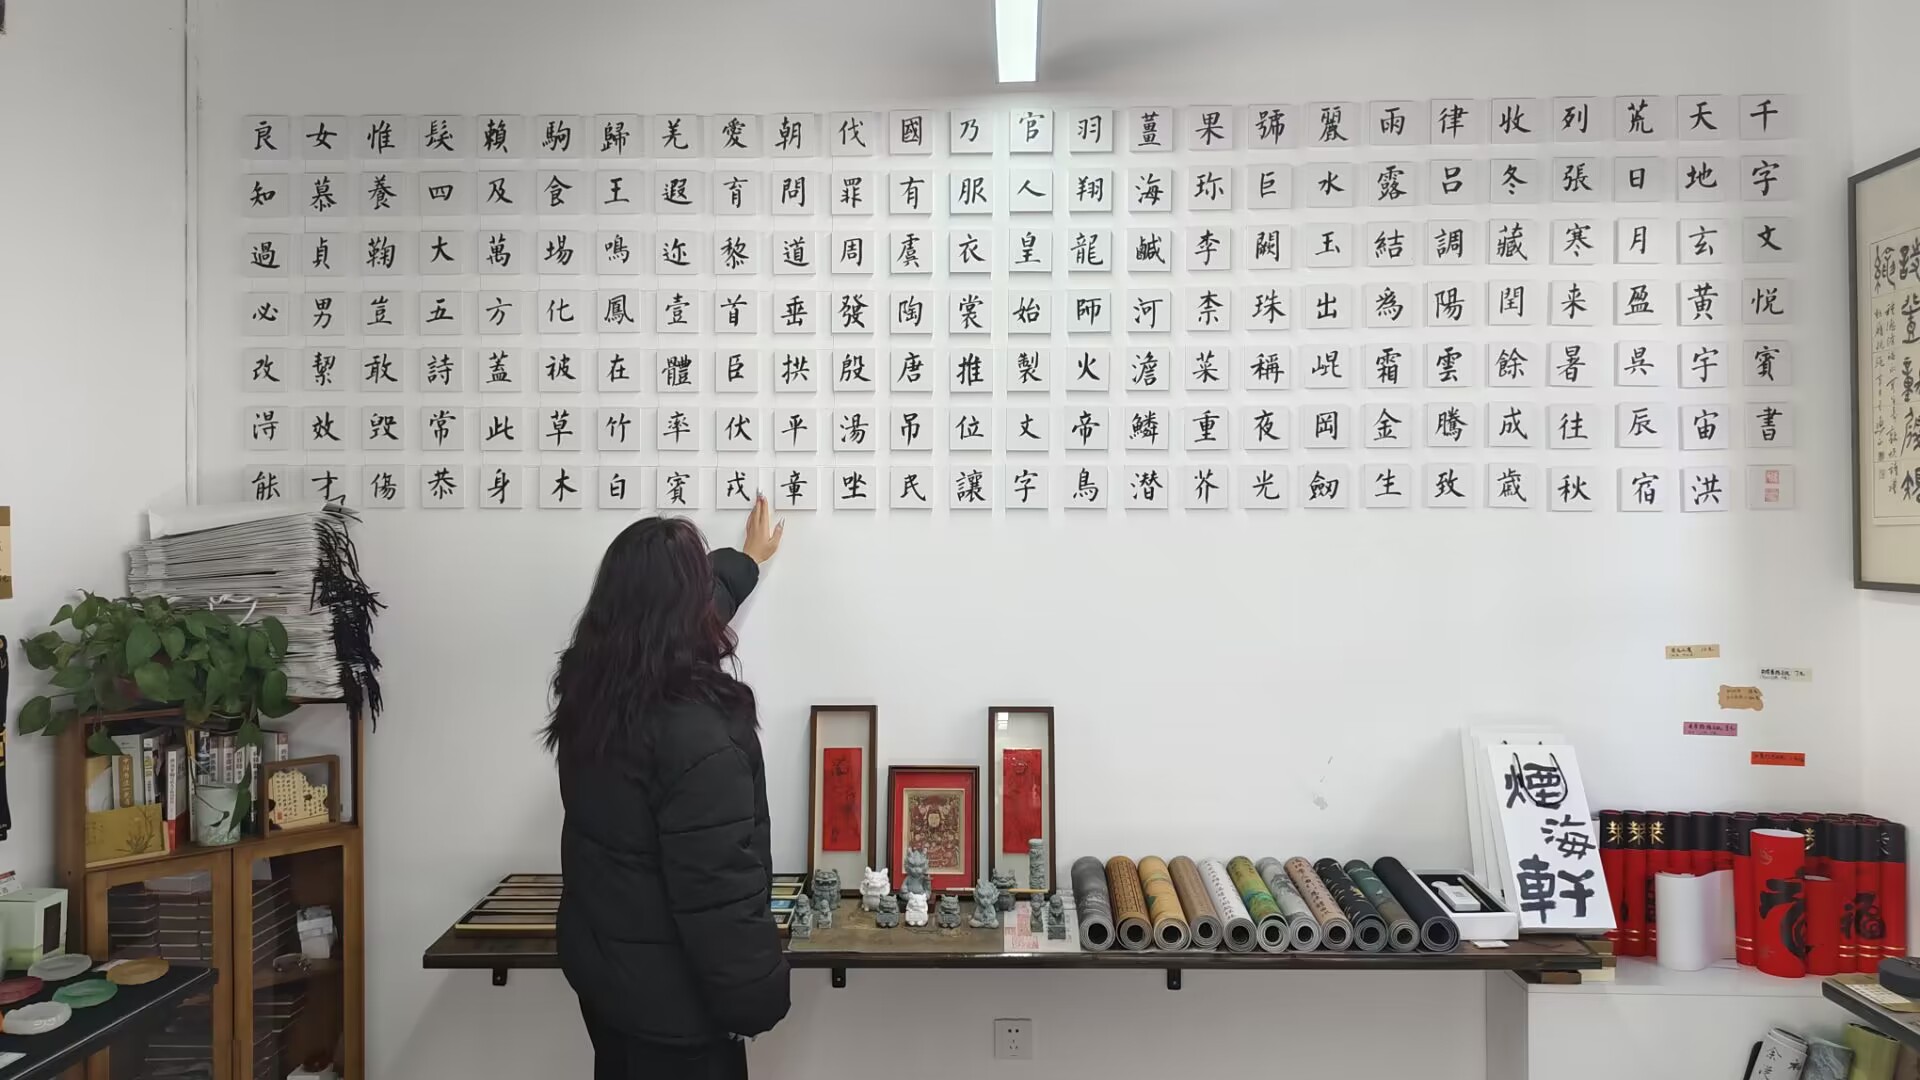 千字文悦賓書
天地玄黃宇宙洪
荒日月盈昃辰宿
列張寒来暑往秋
收冬藏閏餘成歲
律呂調陽雲騰致
雨露結為霜金生
麗水玉出崐岡劒
號巨闕珠稱夜光
果珎李柰菜重芥
薑海鹹河澹鱗潛
羽翔龍師火帝鳥
官人皇始製文字
乃服衣裳推位讓
國有虞陶唐吊民
伐罪周發殷湯坐
朝問道垂拱平章
愛育黎首臣伏戎
羌遐迩壹體率賓
歸王鳴鳳在竹白
駒食場化被草木
賴及萬方蓋此身
髮四大五詩常恭
惟養鞠豈敢毀傷
女慕貞男絜效才
良知過必改得能
煙海軒
福